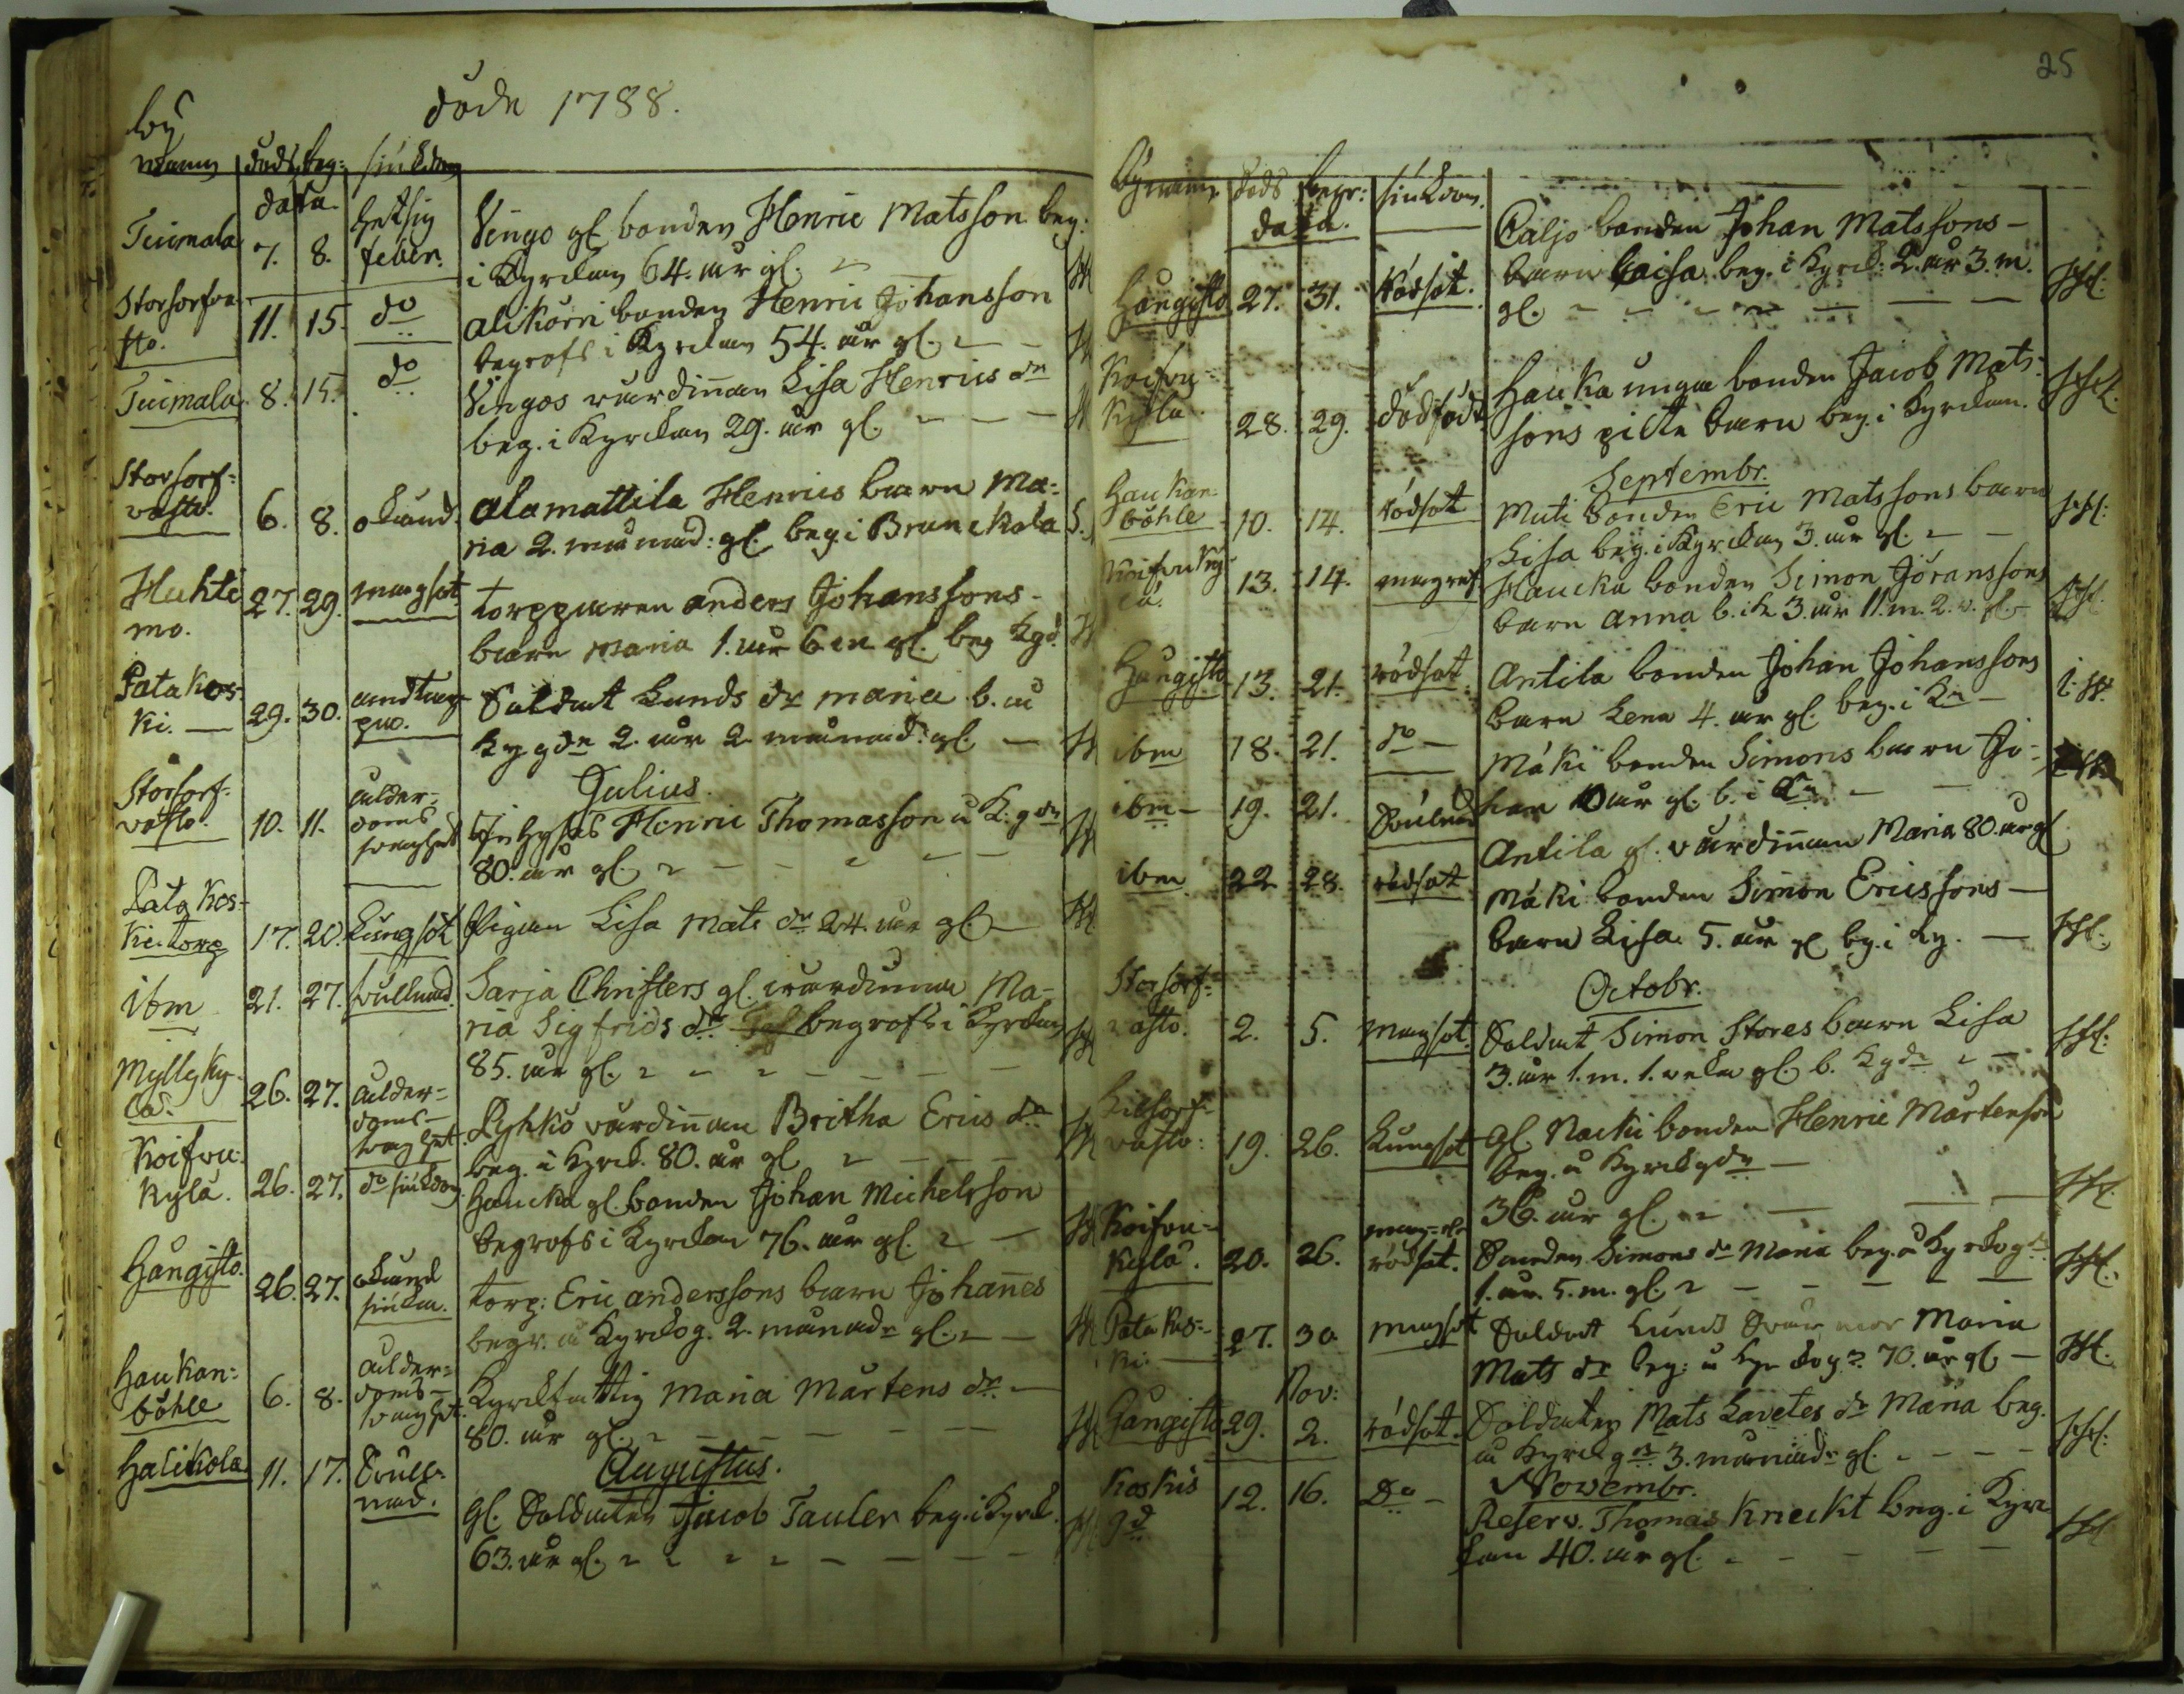 by
namn döds beg: siukdom
data
döde 1788.
Tuimala 7. 8. hetsig feber. Vingo gl bonden Henric Matsson beg:
i Kyrckan 64. år gl.
Storsorfva
sto. 11. 15. do Alikorri bonden Henric Johansson
begrofs i Kyrckan 54. år gl.
Tuimala 8. 15. do Vingos värdinnan Lisa Henrics dr
beg. i Kyrckan 29. år gl.
Storsorf-
vasto. 6. 8. okänd. Alamattila Henrics barn Ma-
ria 2. månad: gl. beg i Brunckala
Huhti
mo. 27. 29. magsot. torpparen Anders Johanssons
barn Maria 1. år 6 m gl. beg Kgd.
Patakos-
ki. 29. 30. andtäp
pa. Soldat Lunds dr Maria b. å
Kygdn 2. år 2 månad. gl.
Julius.
Storsorf-
vasto. 10. 11. ålder-
doms
svaghet Inhyses Henric Thomasson å K: gdn
80. år gl.
Patakos-
ki. torp 17. 20. Lungsot Pigan Lisa Mats dr 24. år gl.
ibm 21. 27. svullnad. Sarja Christers gl. värdinna Ma-
ria Sigfrids dr begrofs i Kyrckan
85. år gl.
Mylly Ky-
lä. 26. 27. ålder-
doms-
svaghet. Pyhkö värdinnan Britha Erics dr
beg. i Kyrck. 80. år gl
Koifvu-
kylä. 26. 27. do siukdom Haucka gl. bonden Johan Michelsson
begrofs i Kyrckan 76. år gl.
Hångisto. 26. 27. okänd
siuka. torp: Eric Anderssons barn Johannes
begr. å Kyrckog. 2. månadr gl.
Haukan-
böhle 6. 8. ålder-
doms-
svaghet. Kyrckfattig Maria Mårtens dr.
80. år gl.
Augustus.
Halikola 11. 17. Svull-
nad. gl. Soldaten Jacob Tauler beg. i Kyrck.
63. år gl.
25
Bynamn döds begr: siukdom.
data.
Hångisto 27. 31. Rödsot. Caljo bonden Johan Matssons
barn Caisa beg. i Kyrck: 2. år 3. m.
gl.
Koifvu-
Kylä 28. 29. dödföd Hauka unga bonden Jacob Mats-
sons barn beg. i Kyrckan.
Septembr.
Haukan-
böhle 10. 14. rödsot Muti bonden Eric Matssons barn
Lisa beg. i Kyrckan 3. år gl.
Koifvu Ky
lä. 13. 14. Haucka bonden Simon Jöranssons
barn Anna b. i K 3. år 11. m. 2. v. gl.
Hångisto 13. 21. rödsot. Antila bonden Johan Johanssons
barn Lena 4. år gl. beg. i Kn
ibm 18. 21. do Mäki bonden Simons barn Jo-
han 10 år gl. b. i Kn
ibm 19. 21. Svulnad Antila gl. värdinnan Maria 80. år gl
ibm 22 28. rödsot Mäki bonden Simon Ericssons
barn Lisa 5. år gl bg. i Ky.
Octobr.
Storsorf-
vasto. 2. 5. Magsot. Soldat Simon Stores barn Lisa
3. år 1. m. 1. veka gl. b. Kgdn
Lilsorf-
vasto: 19. 26. Lungsot gl. Nacki bonden Henric Mårtensson
beg. å Kyrckgdn
36. år gl.
Koifvu-
kylä. 20. 26. rödsot. Simons dr Maria beg. å Kyrckog.
1. år. 5. m. gl.
Patakos-
ki. 27. 30. magsot Soldat Lunds Svär mor Maria
Mats dr beg: å Kyrckog. 70. år gl
Nov:
Hångisto 29. 2. rödsot. Soldaten Mats Lavetes dr Maria beg.
å Kyrckgn 3. månadr gl.
Novembr.
Koskis
gd 12. 16. Do Reserv. Thomas Kneckt beg. i Kyrc
kan 40. år gl.